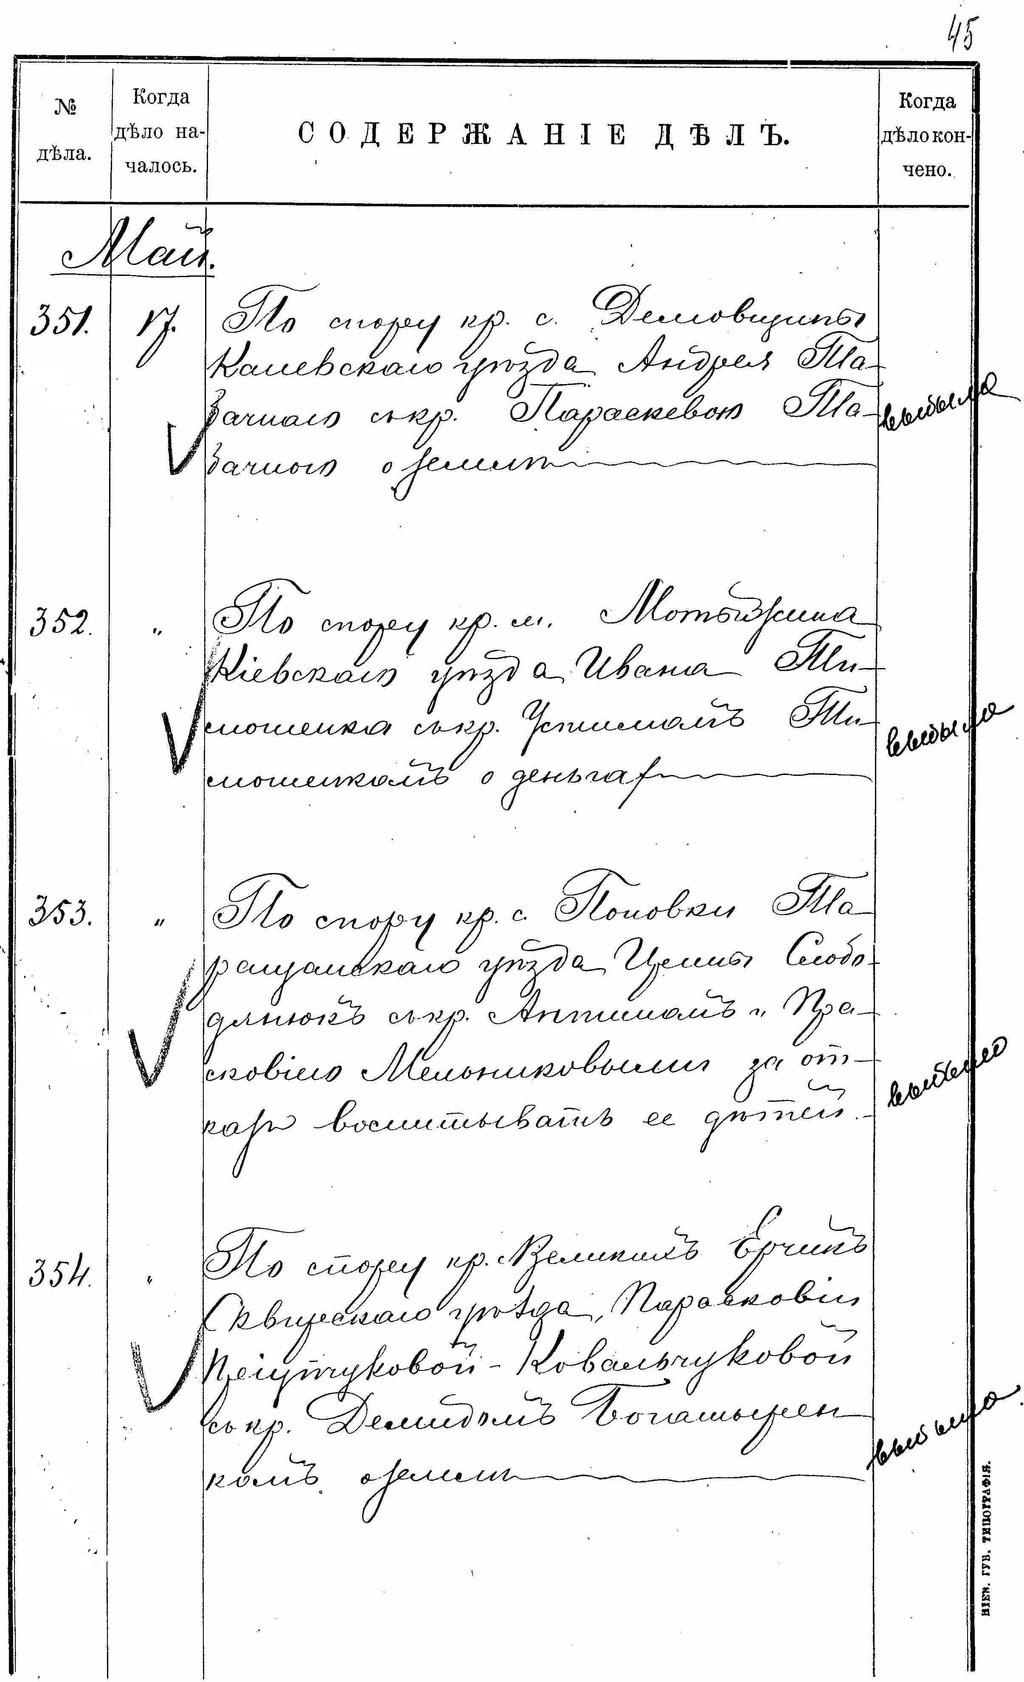 45
№ дѣла.
Когда дѣло на-чалось.
СОДЕРЖАНІЕ ДѢЛЪ.
Когда дѣло кон-чено.
Май.
351. 17. По спору кр. с. Демовщины
Каневскаго уѣзда Андрея Та-
бачнаго съ кр. Параскевою Та-
бачною о землѣ
выбыло
352. " По спору кр. м. Мотыжина
Кіевскаго уѣзда Ивана Ти-
мошенка съ кр. Устимомъ Ти-
мошенкомъ о деньгах
выбыло
353. " По спору кр. с. Поповки Та-
ращанскаго уѣзда Слобо-
длнюкъ съ кр. Антиномъ и Пра-
сковіею Мельниковыми за от-
казъ воспитывать ее дѣтей.
выбыло
354. " По спору кр. Великихъ Ерчикъ
Сквирскаго уѣзда, Парасковіи
Ковальчуковой
съ кр. Демидомъ Богатырен
комъ о землѣ
выбыло
КІЕВ. ГУБ. ТИПОГРАФІЯ.